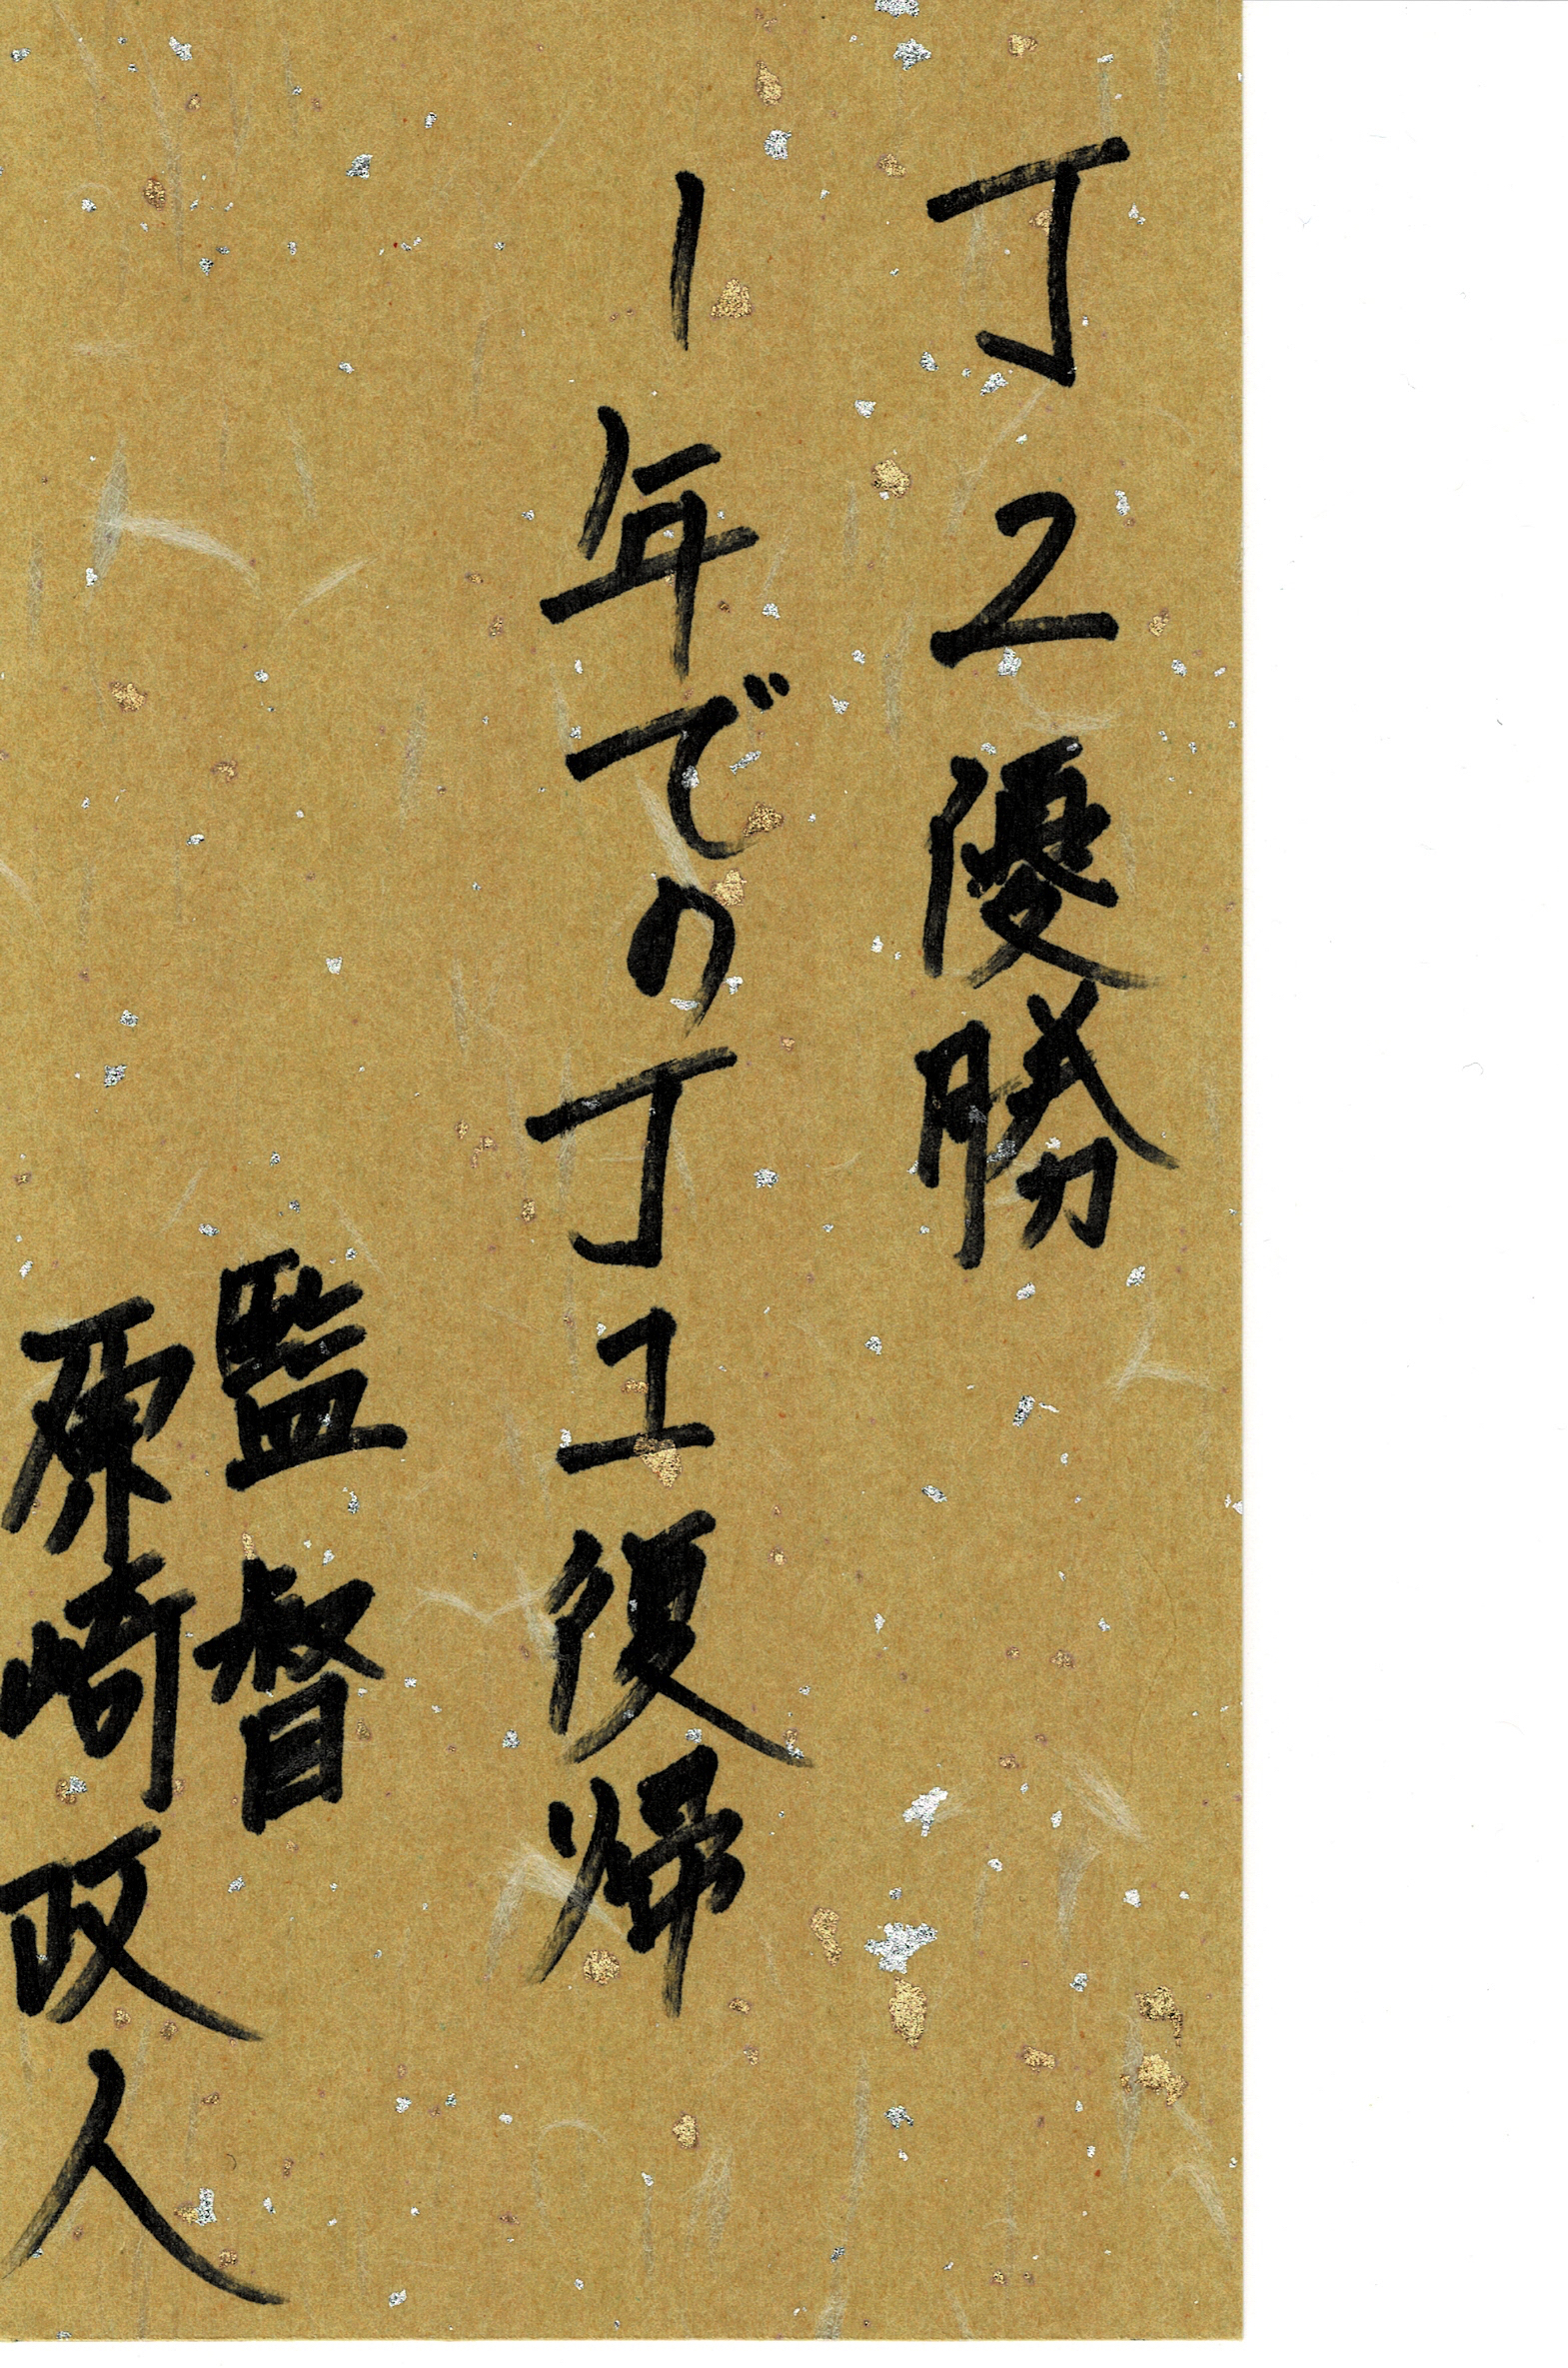 J2優勝
1年でのJ1復帰
監督
原崎政人